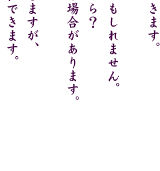 きます。
もしれません。
ら？
場合があります。
ますが、
できます。